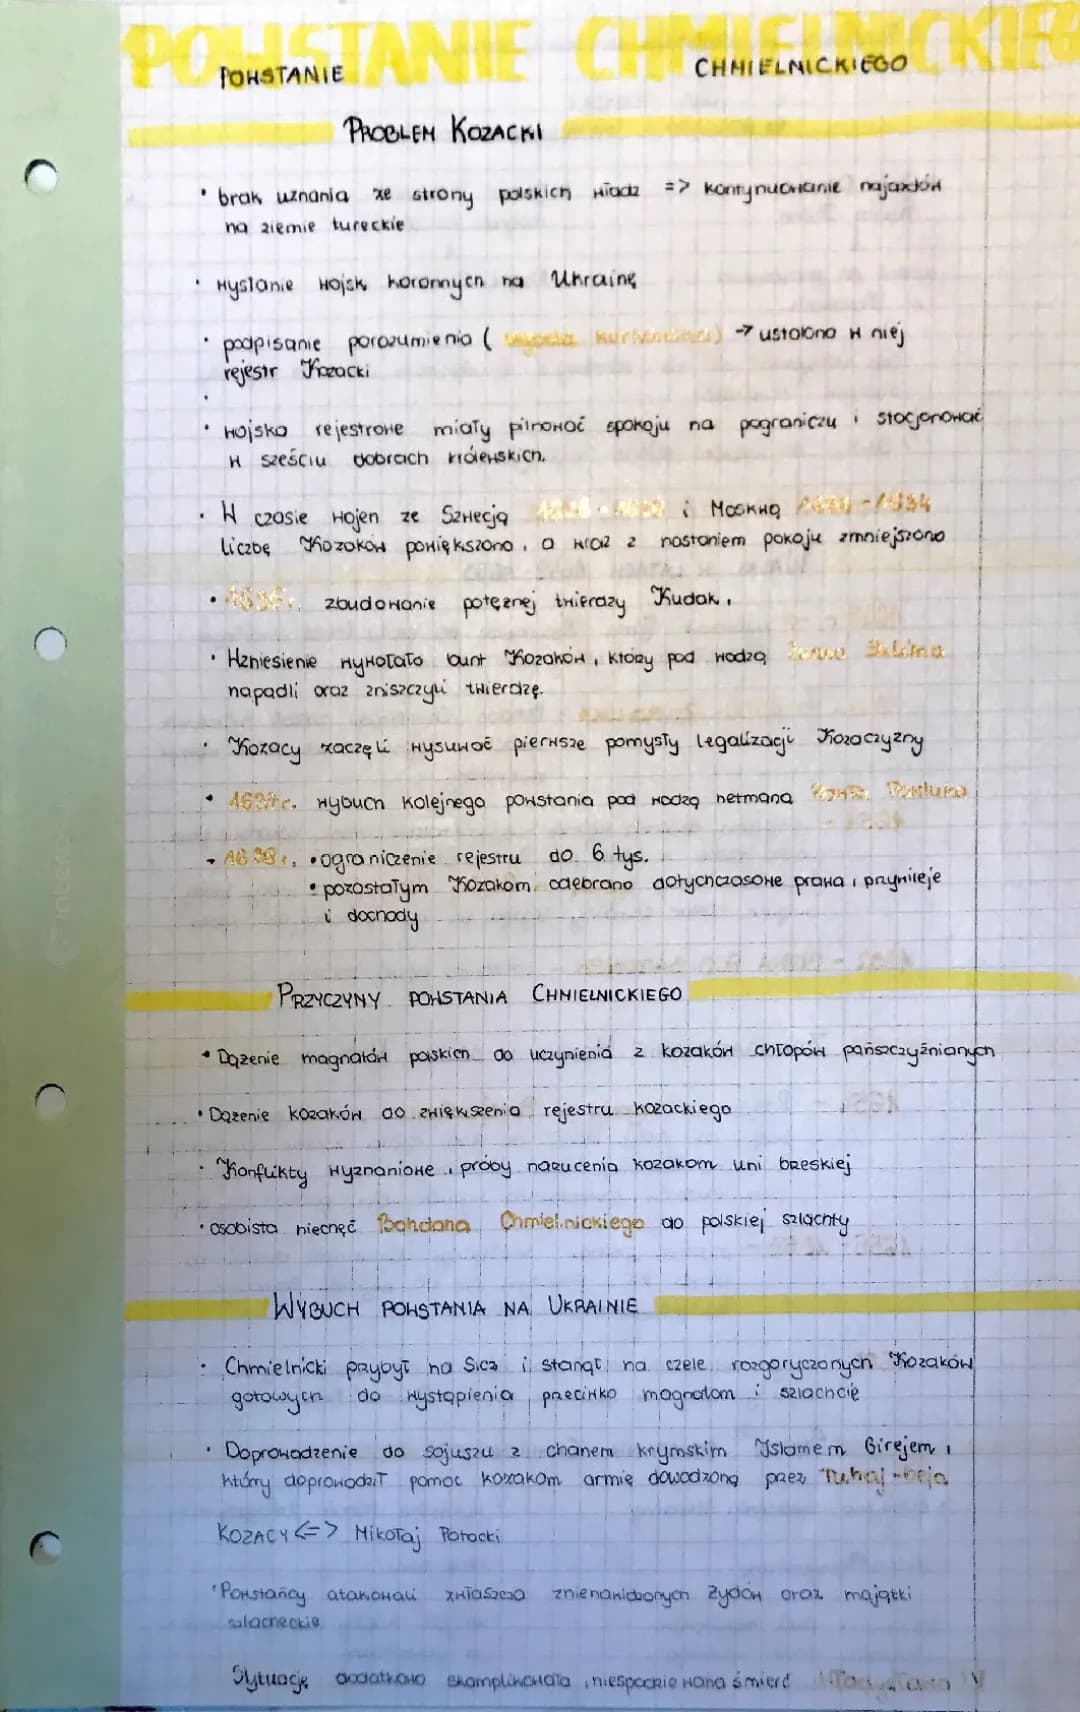 POWSTANIE CHMIELNICKIEGO
POWSTANIE CHMIELNICKIEGO
PROBLEM KOZACKI
• brak uznania ze strony polskich władz => kontynuowanie najazdów
na ziemie tureckie
• wysłanie wojsk koronnych na Ukrainę
• podpisanie porozumienia ( ) → ustalono w niej
rejestr Kozacki
•
• wojsko rejestrowe miały pilnować spokoju na pograniczu i stacjonować
w sześciu dobrach królewskich.
• W czasie wojen ze Szwecją i Moskwą -1634
liczbę Kozaków powiększono, a wraz z nastaniem pokoju zmniejszono
• zbudowanie potężnej twierdzy Kudak,
• Wzniesienie wywołało bunt Kozaków, którzy pod wodzą
napadli oraz zniszczyli twierdzę.
• Kozacy zaczęli wysuwać pierwsze pomysły legalizacji Kozaczyzny
• 1637r. wybuch kolejnego powstania pod wodzą hetmana
• 1638r. • ograniczenie rejestru do 6 tys.
• pozostałym Kozakom odebrano dotychczasowe prawa, przywileje
i dochody
PRZYCZYNY POWSTANIA CHMIELNICKIEGO
• Dążenie magnatów polskich do uczynienia z kozaków chłopów pańszczyźnianych
• Dążenie kozaków do zwiększenia rejestru kozackiego
• Konflikty wyznaniowe, próby narzucenia kozakom uni brzeskiej
• osobista niechęć Bohdana Chmielnickiego do polskiej szlachty
WYBUCH POWSTANIA NA UKRAINIE
• Chmielnicki przybył na Sicz i stanął na czele rozgoryczonych Kozaków
gotowych do wystąpienia przeciwko magnatom i szlachcie
• Doprowadzenie do sojuszu z chanem krymskim Islamem Girejem,
który doprowadził pomoc kozakom armię dowodzoną przez Tuhaj-beja
KOZACY <=> Mikołaj Potocki
• Powstańcy atakowali zwłaszcza znienawidzonych Żydów oraz majątki
szlacheckie
Sytuację dodatkowo skomplikowała niespodziewana śmierć Władysława IV